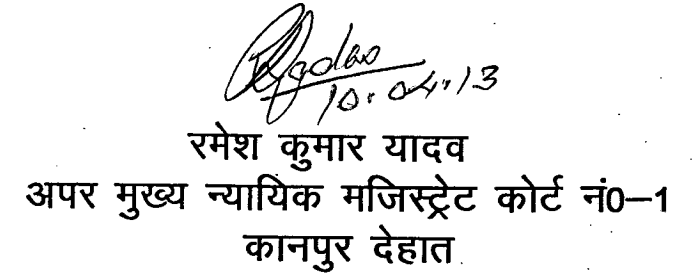 RKYadav
10.04.13
रमेश कुमार यादव
अपर मुख्य न्यायिक मजिस्ट्रेट कोर्ट नं0-1
कानपुर देहात